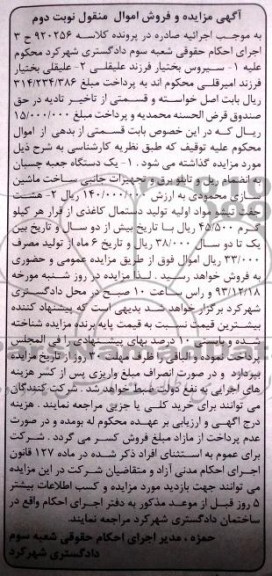 آگهی مزایده و فروش اموال منقول نوبت دوم
به موجب اجرائیه صادره در پرونده کلاسه ۹۲۰۲۵۶ ح ۳
اجرای احکام حقوقی شعبه سوم دادگستری شهرکرد محکوم
علیه ۱- سیروس بختیار فرزند علیقلی ۲- علیقلی بختیار
فرزند امیرقلی محکوم اند به پرداخت مبلغ ۳۱۴/۲۳۴/۳۸۶
ریال بابت اصل خواسته و قسمتی از تاخیر تادیه در حق
صندوق قرض الحسنه محمدیه و پرداخت مبلغ ۱۵/۰۰۰/۰۰۰
ریال که در این خصوص بابت قسمتی از بدهی از اموال
محکوم علیه توقیف که طبق نظریه کارشناسی به شرح ذیل
مورد مزایده گذاشته می شود. ۱- یک دستگاه جعبه چسبان
به انضمام ریل و تابلو برق و تجهیزات جانبی ساخت ماشین
سازی محمودی به ارزش ۱۴۰/۰۰۰/۰۰۰ ریال ۲- هشت
جفت تیشو مواد اولیه تولید دستمال کاغذی از قرار هر کیلو
گرم ۴۵/۵۰۰ ریال با تاریخ بیش از دو سال و تاریخ بین
یک تا دو سال ۳۸/۰۰۰ ریال و تاریخ ۶ ماه از تولید مصرف
۳۳/۰۰۰ ریال اموال فوق از طریق مزایده عمومی و حضوری
به فروش خواهد رسید. لذا مزایده در روز شنبه مورخه
۹۳/۱۲/۱۸ و راس ساعت ۱۰ صبح در محل دادگستری
شهرکرد برگزار خواهد شد بدیهی است که پیشنهاد کننده
بیشترین قیمت نسبت به قیمت پایه برنده مزایده شناخته
شده و بایستی ۱۰ درصد بهای پیشنهادی را فی المجلس
پرداخت نموده و الباقی را ظرف مهلت ۳۰ روز از تاریخ مزایده
بپردازد و در صورت انصراف مبلغ واریزی پس از کسر هزینه
های اجرایی به نفع دولت ضبط خواهد شد. شرکت کنندگان
می توانند برای خرید کلی یا جزیی مراجعه نمایند. هزینه
درج آگهی و ارزیابی بر عهده محکوم له بوده و در صورت
عدم پرداخت از مازاد مبلغ فروش کسر می گردد. شرکت
برای عموم به استثنای افراد ذکر شده در ماده ۱۲۷ قانون
اجرای احکام مدنی آزاد و متقاضیان شرکت در این مزایده
می توانند جهت بازدید مورد مزایده و کسب اطلاعات بیشتر
۵ روز قبل از موعد مذکور به دفتر اجرای احکام واقع در
ساختمان دادگستری شهرکرد مراجعه نمایند.
حمزه، مدیر اجرای احکام حقوقی شعبه سوم
دادگستری شهرکرد